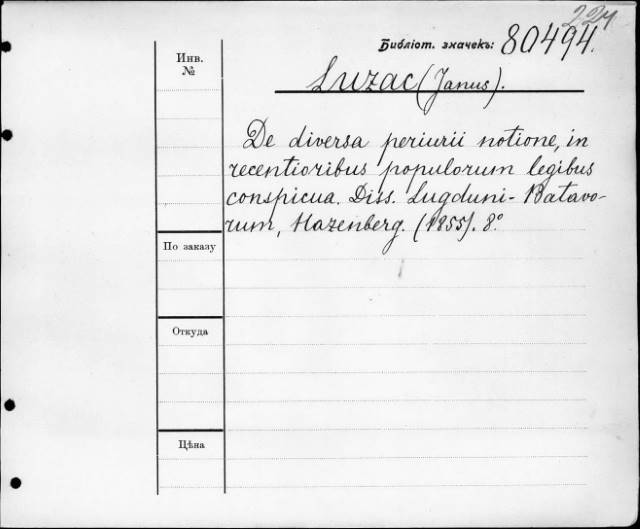 224
Библіот. значекъ: 80494.
Инв.
№
Luzac (Janus).
De diversa periurii notione, in
recentioribus populorum legibus
conspicua. Diss. Lugduni-Batavo-
rum, Hazenberg. (1855). 8°.
По заказу
Откуда
Цѣна